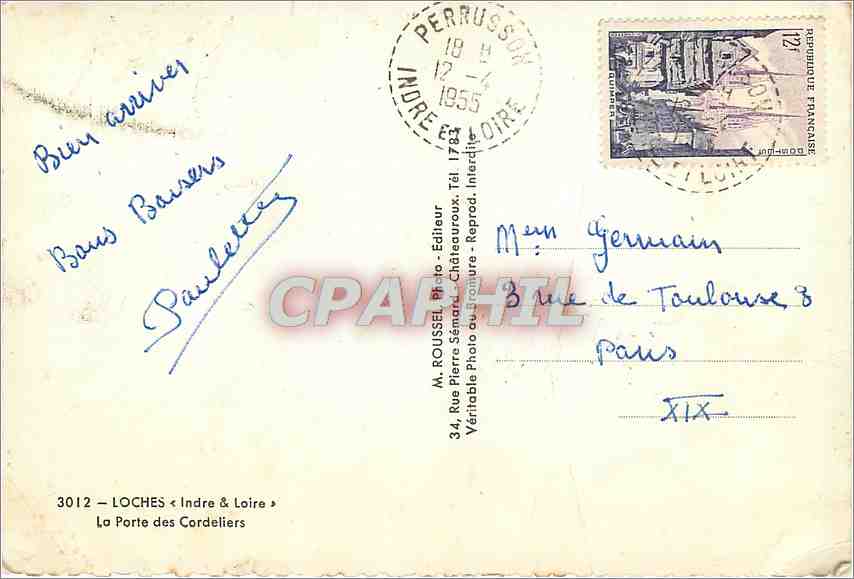 PERRUSSON
18 H
12 - 4
1955
INDRE ET LOIRE
12F
REPUBLIQUE FRANÇAISE
POSTES
QUIMPER
Bien arriver
Bons Baisers
Paulette
M. ROUSSEL, Photo - Editeur
34, Rue Pierre Sémard - Châteauroux. Tél. 1783
Véritable Photo au Bromure - Reprod. Interdite
CPAPHIL
Mem Germain
3 rue de Toulouse 3
Paris
XIX
3012 – LOCHES « Indre & Loire »
La Porte des Cordeliers